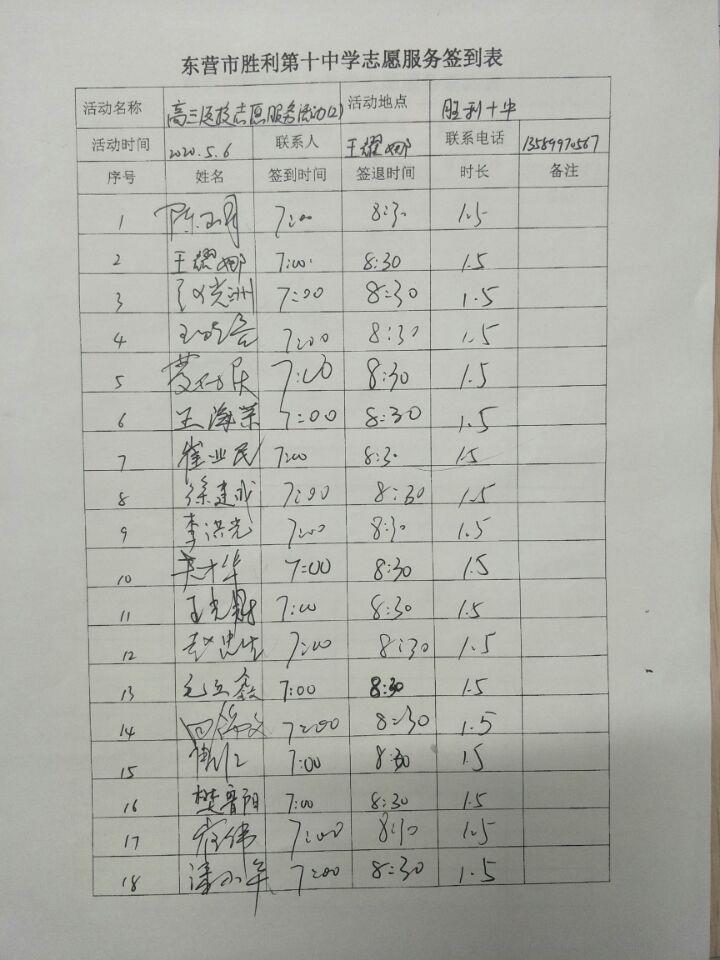 东营市胜利第十中学志愿服务签到表
活动名称 高三返校志愿服务活动(2) 活动地点 胜利十中
活动时间 2020.5.6 联系人 王耀娜 联系电话 13589970567
序号 姓名 签到时间 签退时间 时长 备注
1 7:00 8:30 1.5
2 王耀娜 7:00 8:30 1.5
3 7:00 8:30 1.5
4 7:00 8:30 1.5
5 7:00 8:30 1.5
6 王海荣 7:00 8:30 1.5
7 崔业民 7:00 8:30 1.5
8 徐建成 7:00 8:30 1.5
9 李洪光 7:00 8:30 1.5
10 7:00 8:30 1.5
11 7:00 8:30 1.5
12 7:00 8:30 1.5
13 7:00 8:30 1.5
14 7:00 8:30 1.5
15 7:00 8:30 1.5
16 樊晋阳 7:00 8:30 1.5
17 7:00 8:30 1.5
18 7:00 8:30 1.5